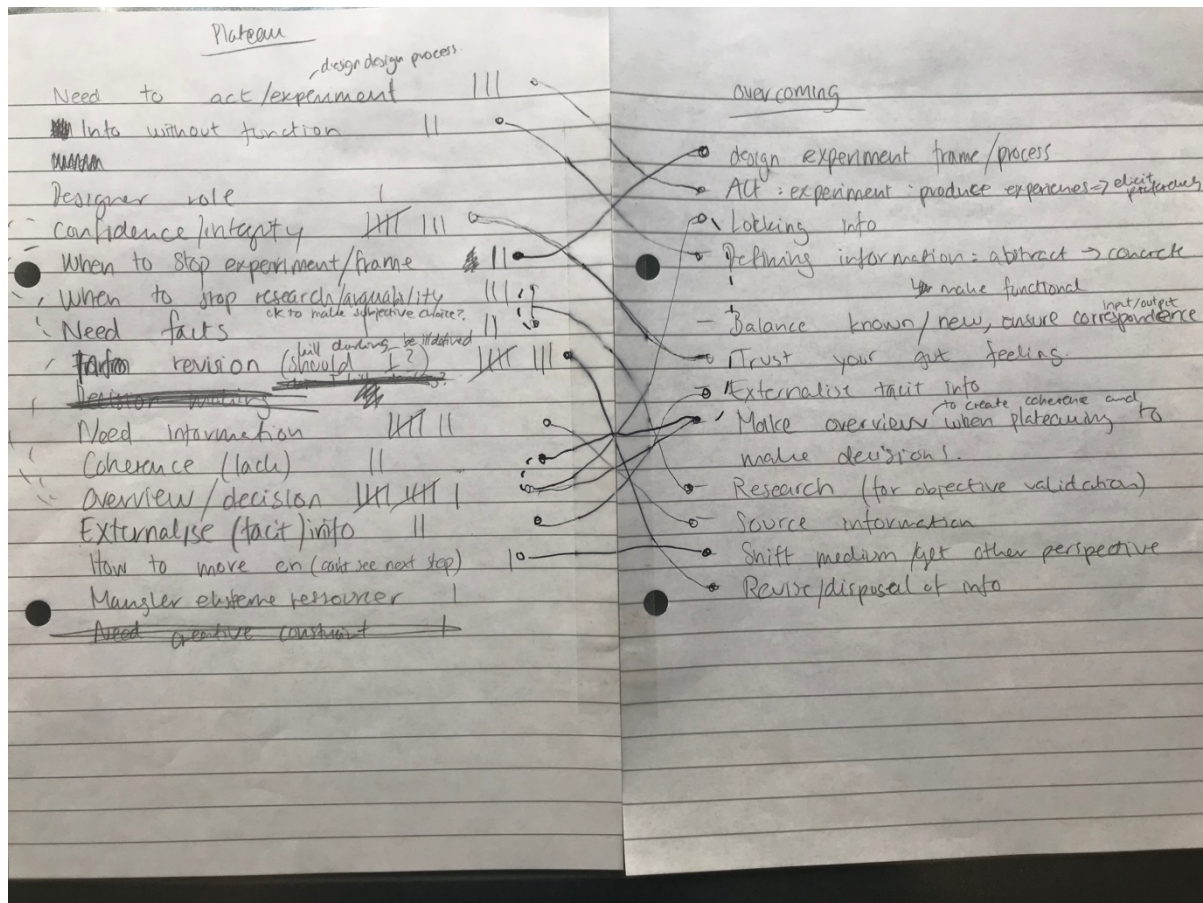 Plateau
design design process
Need to act/experiment |||
Info without function ||
Designer role |
Confidence/integrity |||| |||
When to stop experiment/frame ||
When to stop research/arguability |||
ok to make subjective choice?
Need facts ||
kill darling, be illdefined
revision (should I?) |||| |||
Decision making
Need information |||| ||
Coherence (lack) ||
Overview/decision |||| |||| |
Externalise (tacit) info ||
How to move on (can't see next step) |
Mangler eksterne ressourcer |
Need creative constraint |
overcoming
design experiment frame/process
Act : experiment : produce experiences => elicit preferences
Locking info
Defining information : abstract → concrete
make functional
input/output
Balance known/new, ensure correspondence
Trust your gut feeling
Externalise tacit info
to create coherence and
Make overview when plateauing to
make decisions.
Research (for objective validation)
Source information
Shift medium/get other perspective
Revise/disposal of info